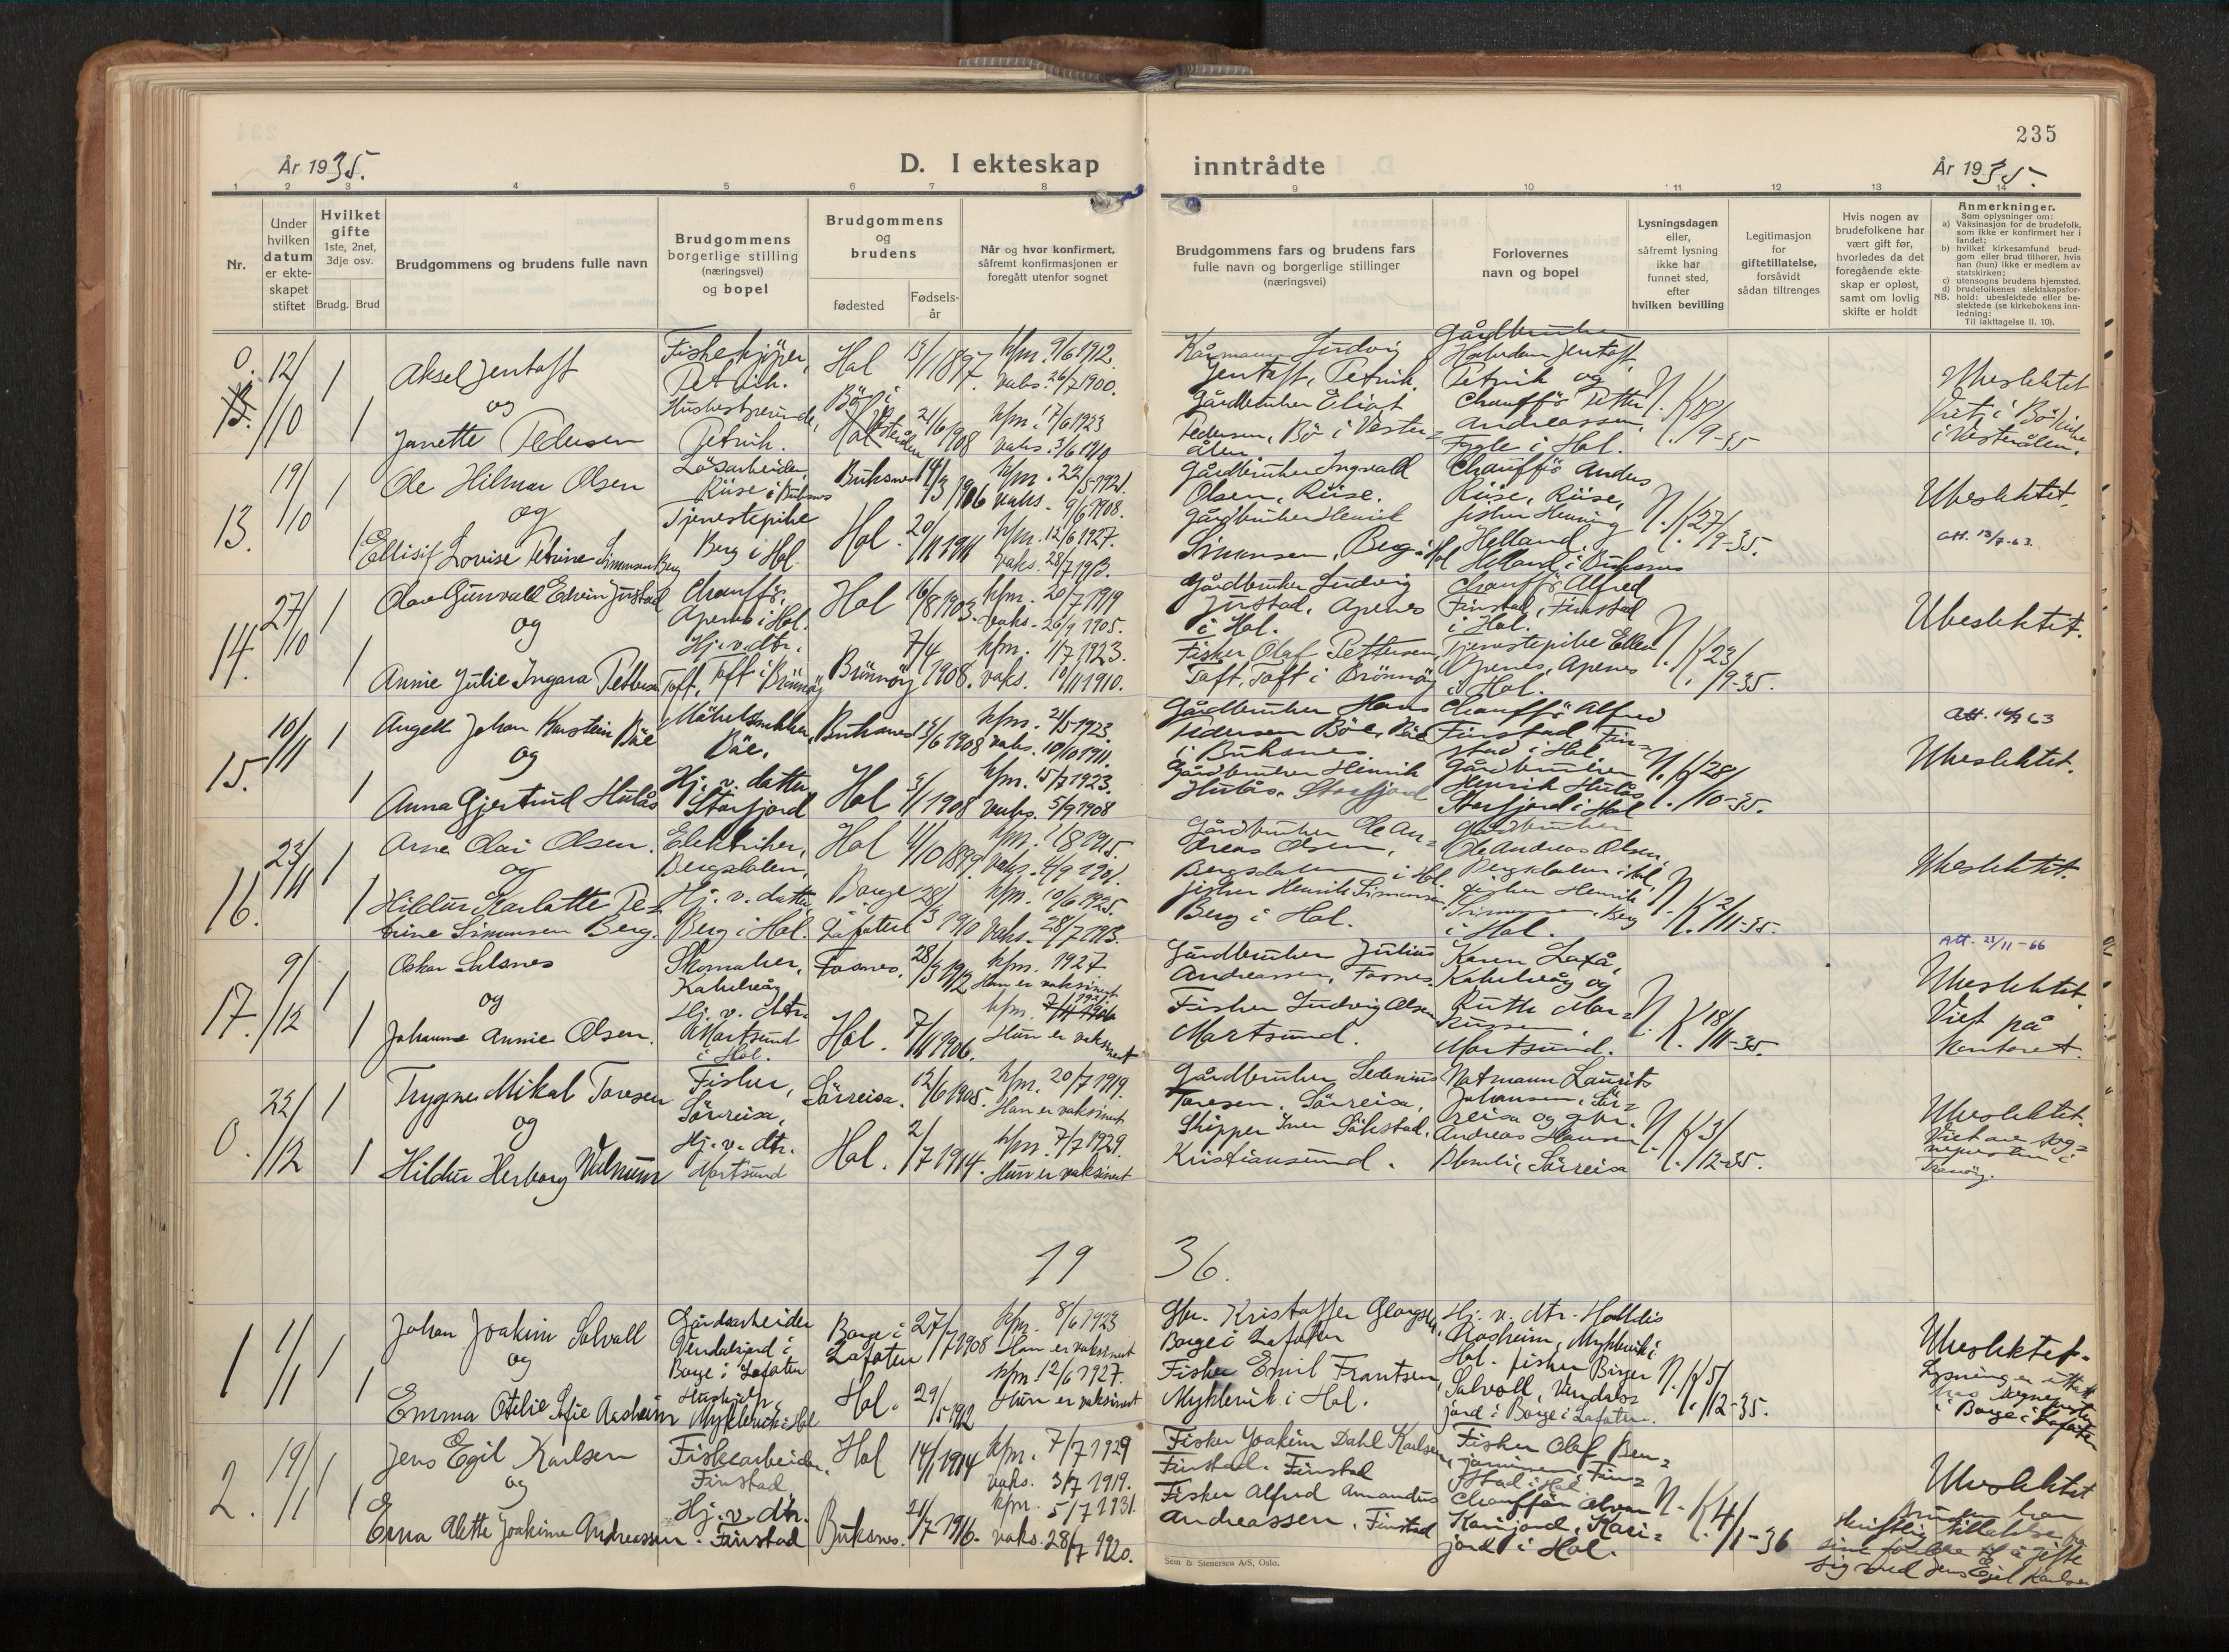 235
År 1935.
D. I ekteskap
inntrådte
År 1935.
1 2 3 4 5 6 7 8
9 10 11 12 13 14
Nr.
Under
hvilken
datum
er ekte-
skapet
stiftet
Hvilket
gifte
1ste, 2net,
3dje osv.
Brudg. Brud
Brudgommens og brudens fulle navn
Brudgommens
borgerlige stilling
(næringsvei)
og bopel
Brudgommens
og
brudens
fødested
Fødsels-
år
Når og hvor konfirmert,
såfremt konfirmasjonen er
foregått utenfor sognet
Brudgommens fars og brudens fars
fulle navn og borgerlige stillinger
(næringsvei)
Forlovernes
navn og bopel
Lysningsdagen
eller,
såfremt lysning
ikke har
funnet sted,
efter
hvilken bevilling
Legitimasjon
for
giftetillatelse,
forsåvidt
sådan tiltrenges
Hvis nogen av
brudefolkene har
vært gift før,
hvorledes da det
foregående ekte-
skap er opløst,
samt om lovlig
skifte er holdt
Anmerkninger.
Som oplysninger om:
a) Vaksinasjon for de brudefolk,
som ikke er konfirmert her i
landet;
b) hvilket kirkesamfund brud-
gom eller brud tilhører, hvis
han (hun) ikke er medlem av
statskirken;
c) utensogns brudens hjemsted.
d) brudefolkenes slektskapsfor-
NB. hold: ubeslektede eller be-
slektede (se kirkebokens inn-
ledning:
Til iakttagelse II. 10).
0. 12/10 1 1
Aksel Jentoft
og
Janette Pedersen
Petvik.
Petvik.
Hol 13/1 1897
Bø i
Vesterålen 21/6 1908
kfm. 9/6 1912.
vaks. 26/7 1900.
kfm. 17/6 1923
vaks. 3/6 1910
Ludvig
Jentoft, Petvik.
Gårdbruker Eliot
Pedersen, Bø i Vester=
ålen
Gårdbruker
Halvdan Jentoft,
Petvik og
Chauffør Petter
Andreassen,
Fygle i Hol.
N. K. 18/9-35
Ubeslektet
Viet i Bø kirke
i Vesterålen.
13. 19/10 1 1
Ole Hilmar Olsen
og
Ellisif Lovise Petrine Simonsen Berg
Løsarbeider
Rise i Buksnes
Tjenestepike
Berg i Hol
Buksnes 14/3 1906
Hol. 20/11 1911
kfm. 22/5 1921.
vaks. 9/6 1908.
kfm. 12/6 1927.
vaks. 28/7 1913.
Gårdbruker Ingvald
Olsen, Rise.
Gårdbruker Henrik
Simonsen, Berg i Hol
Chauffør Anders
Rise, Rise,
fisker Henning
Helland
Helland i Buksnes
N. K. 27/9-35.
Ubeslektet.
att. 13/7-63.
14. 27/10 1 1
Olav Gunvald Edvin Justad
og
Annie Julie Ingara Pettersen
Chauffør,
Apenes i Hol.
Hj. v. dtr.
Toft, Toft i Brønnøy
Hol 16/8 1903.
Brønnøy 7/4 1908.
kfm. 20/7 1919
vaks. 26/9 1905.
kfm. 1/7 1923.
vaks. 10/11 1910.
Gårdbruker Ludvig
Justad, Apenes
i Hol.
Fisker Olaf Pettersen
Toft, Toft i Brønnøy
Chauffør Alfred
Finstad, Finstad
i Hol.
Tjenestepike Ellen
Apenes, Apenes
i Hol.
N. K. 23/9-35.
Ubeslektet.
15. 10/11 1 1
Angell Johan Karstein Bøe
og
Anna Gjertrud Hulås
Møbelsnekker,
Bøe.
Hj. v. datter
Storfjord
Buksnes 13/6 1908
Hol 3/1 1908
kfm. 21/5 1923.
vaks. 10/10 1911.
kfm. 15/7 1923.
vaks. 5/9 1908
Gårdbruker Hans
Pedersen Bøe, Bøe
i Buksnes
Gårdbruker Henrik
Hulås. Storfjord
Chauffør Alfred
Finstad, Fin=
stad i Hol
Gårdbruker
Henrik Hulås
Storfjord i Hol
N. K. 28/10-35.
Att. 14/9 63
Ubeslektet.
16. 23/11 1 1
Arne Olai Olsen.
og
Hildur Karlotte Pe=
trine Simonsen Berg.
Elektriker,
Bergsdalen,
Hj. v. datter
Berg i Hol.
Hol 4/10 1899.
Borge
Lofoten 28/3 1910
kfm. 1/8 1915.
vaks. 4/9 1901.
kfm. 10/6 1925.
vaks. 28/7 1913.
Gårdbruker Ole An=
dreas Olsen,
Bergsdalen i Hol.
fisker Henrik Simonsen
Berg i Hol.
Gårdbruker
Ole Andreas Olsen,
Bergsdalen i Hol,
fisker Henrik
Simonsen, Berg
i Hol.
N. K. 2/11-35.
Ubeslektet.
17. 9/12 1 1
Oskar Selsnes
og
Johanne Annie Olsen.
Skomaker,
Kabelvåg
Hj. v. dtr.
Mortsund
i Hol.
Fosnes. 28/3 1912
Hol. 7/11 1906.
kfm. 1927
Han er vaksinert
kfm. 1921
Hun er vaksinert
Gårdbruker Julius
Andreassen, Fosnes.
Fisker Ludvig Olsen
Mortsund.
Karen Laxå,
Kabelvåg og
Ruth Mar=
Mortsund.
N. K. 18/11-35.
Att. 21/11-66
Ubeslektet.
Viet på
kontoret.
0. 22/12 1 1
Trygve Mikal Toresen
og
Hildur Herborg Valnum
Fisker,
Sørreisa,
Hj. v. dtr.
Mortsund
Sørreisa. 12/6 1905.
Hol. 2/7 1914.
kfm. 20/7 1919.
Han er vaksinert
kfm. 7/7 1929.
Hun er vaksinert
Gårdbruker Sedenius
Toresen, Sørreisa,
Skipper
Kristiansund.
Notmann Laurits
Johansen, Sør=
reisa og gbr.
Andreas Hansen
Sørreisa
N. K. 3/12-35.
Ubeslektet.
Viet av sog=
nepresten i
Tranøy.
19 36.
1 1/1 1 1
Johan Joakim Solvoll
og
Emma Otelie Sofie Aasheim
Gårdsarbeider
Vendalsjord i
Borge i Lofoten
Hushjelp,
Myklevik i Hol
Borge i
Lofoten 27/7 1908
Hol. 29/5 1912
kfm. 8/6 1923
Han er vaksinert
kfm 12/6 1927.
Hun er vaksinert
Gbr. Kristoffer Georgsen,
Borge i Lofoten
Fisker Emil Frantsen,
Myklevik i Hol.
Hj. v. dtr. Halldis
Aasheim, Myklevik i
Hol. fisker Birger
Solvoll, Vendals=
jord i Borge i Lofoten.
N. K. 5/12-35.
Ubeslektet.
Lysning er uttatt
hos sognepresten
i Borge i Lofoten
2. 19/1 1 1
Jens Egil Karlsen
og
Erna Alette Joakime Andreassen.
Fiskearbeider.
Finstad
Hj. v. dtr.
Finstad
Hol 14/1 1914
Buksnes. 21/7 1916.
kfm. 7/7 1929
vaks. 3/7 1919.
kfm. 5/7 1931.
vaks. 28/7 1920.
Fisker Joakim Dahl Karlsen,
Finstad. Finstad
Fisker Alfred Amandus
Andreassen, Finstad
Fisker Olaf Ben=
jaminsen, Fin=
stad i Hol
Chauffør
Karijord, Kari=
jord i Hol.
N. K. 4/1-36
Ubeslektet
Bruden har
skriftlig tillatelse fra
sine foreldre til å gifte
sig med Jens Egil Karlsen
Sem & Stenersen A/S, Oslo.